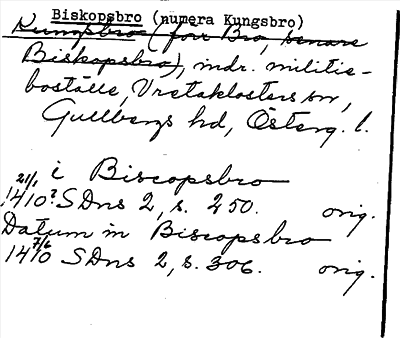 Biskopsbro (numera Kungsbro)
Kungsbro (förr Bro, senare
Biskopsbro), mdr. militie-
boställe, Vretaklosters sn,
Gullbergs hd, Österg. l.
i Biscopsbro
21/1 1410? SDns 2, s. 250. orig.
Datum in Biscopsbro
7/6 1410 SDns 2, s. 306. orig.